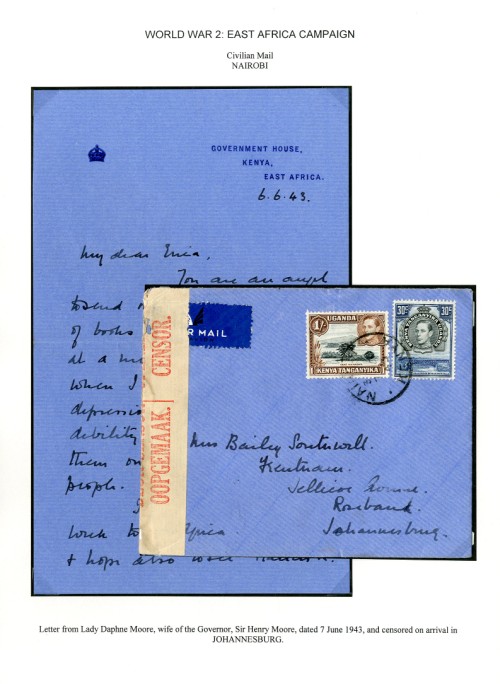 WORLD WAR 2: EAST AFRICA CAMPAIGN
Civilian Mail
NAIROBI
GOVERNMENT HOUSE,
KENYA,
EAST AFRICA.
6.6.43.
My dear Erica,
You are an angel
to send
of books
at a
when I
depressio
debility
them on
people.
week to Africa
& hope also to see
AIR MAIL
OOPGEMAAK. CENSOR.
1/- UGANDA
KENYA TANGANYIKA
30c 30c
NAI
Mrs Bailey Southwell.
Kentnam.
Jellicoe Avenue.
Rosebank.
Johannesburg.
Letter from Lady Daphne Moore, wife of the Governor, Sir Henry Moore, dated 7 June 1943, and censored on arrival in
JOHANNESBURG.